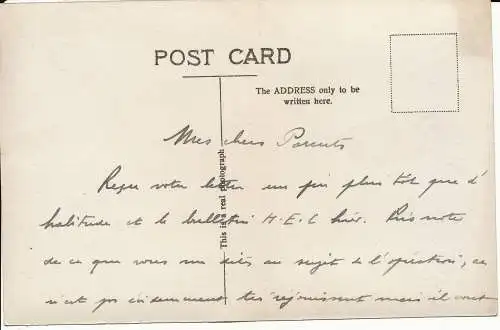 POST CARD
The ADDRESS only to be
written here.
This is a real photograph
Mes chers Parents
Reçu votre lettre un peu plus tôt que d'
habitude et le bulletin H.E.C hier. Pris note
de ce que vous me dites au sujet de l'opération, ce
n'est pas évidemment très réjouissant mais il vaut